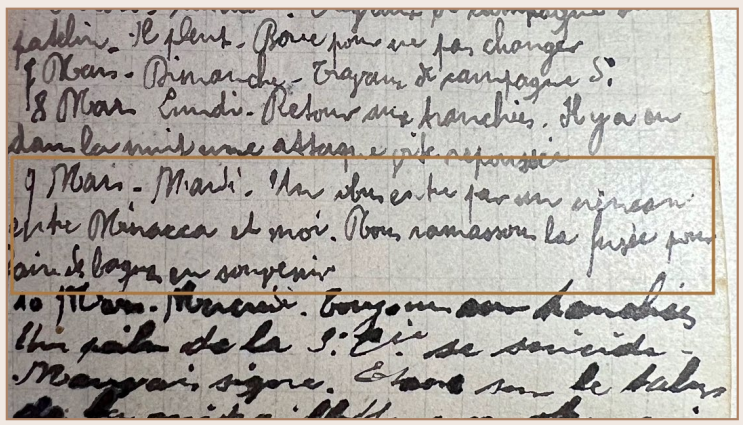 patelin. Il pleut. Boue pour ne pas changer
7 Mars - Dimanche - Travaux de campagne S.
8 Mars Lundi - Retour aux tranchées. Il y a eu
dans la nuit une attaque vite repoussée
9 Mars - Mardi. Un obus entre par un créneau
entre Minacca et moi. Nous ramassons la fusée pour
faire des bagues en souvenir
10 Mars. Mercredi. Toujours aux tranchées
Un poilu de la 3e Cie se suicide -
Mauvais signe. sur le talus
de la